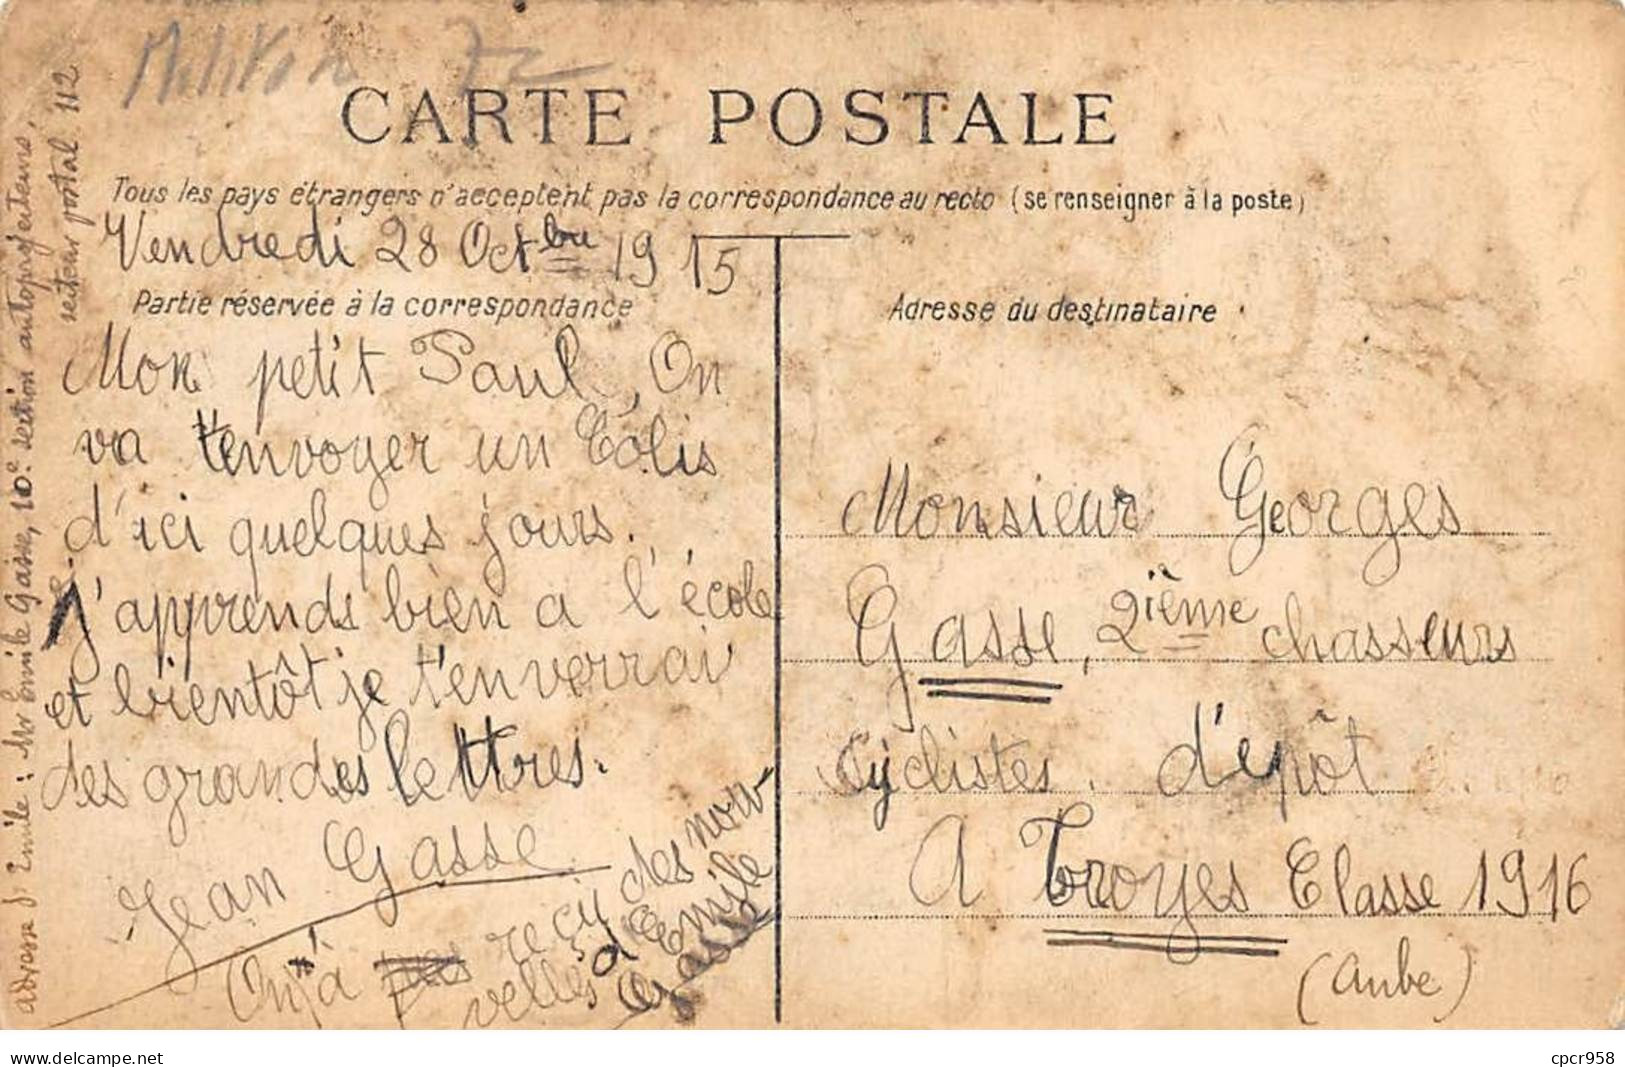 72
CARTE POSTALE
Tous les pays étrangers n'acceptent pas la correspondance au recto (se renseigner à la poste)
Vendredi 28 Octbre 1915
Partie réservée à la correspondance
Mon petit Paul, On
va t'envoyer un Colis
d'ici quelques jours.
J'apprends bien a l'école
et bientôt je t'enverrai
des grandes lettres.
Jean Gasse
On n'a pas reçu des nou-
velles d'Emile
Gasse
adresse d'Emile : Mr Emile Gasse, 10e section autoprojecteurs,
secteur postal 112
Adresse du destinataire
Monsieur Georges
Gasse, 2ième chasseurs
Cyclistes. d'epôt
A Troyes Classe 1916
(Aube)
www.delcampe.net
cpcr958